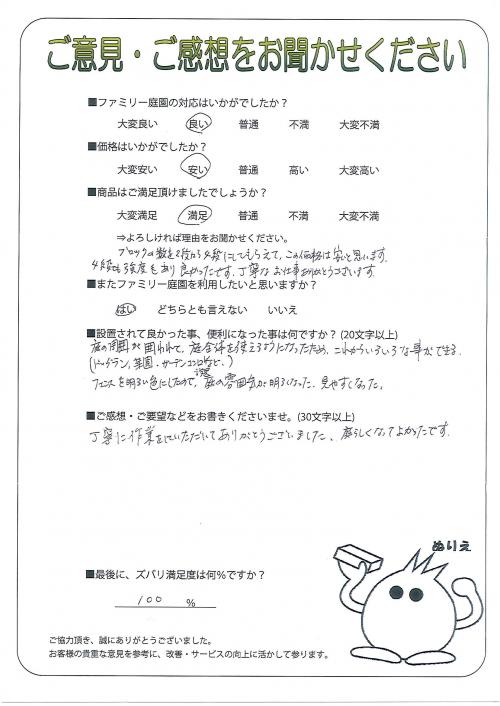 ご意見・ご感想をお聞かせください
■ファミリー庭園の対応はいかがでしたか？
大変良い 良い 普通 不満 大変不満
■価格はいかがでしたか？
大変安い 安い 普通 高い 大変高い
■商品はご満足頂けましたでしょうか？
大変満足 満足 普通 不満 大変不満
⇒よろしければ理由をお聞かせください。
ブロックの数を2段から4段にしてもらえて、この価格は安いと思います。
4段も強度もあり良かったです。丁寧なお仕事ありがとうございます。
■またファミリー庭園を利用したいと思いますか？
はい どちらとも言えない いいえ
■設置されて良かった事、便利になった事は何ですか？(20文字以上)
庭の周囲が囲われて、庭全体を使えるようになったため、これからいろいろな事ができる。
(ドッグラン、菜園、ガーデンエコなど。)
フェンスを明るい色にしたので、庭の雰囲気が明るくなった。見やすくなった。
■ご感想・ご要望などをお書きくださいませ。(30文字以上)
丁寧に作業をしていただいてありがとうございました、庭らしくなってよかったです。
ぬりえ
■最後に、ズバリ満足度は何%ですか？
100 %
ご協力頂き、誠にありがとうございました。
お客様の貴重な意見を参考に、改善・サービスの向上に活かして参ります。